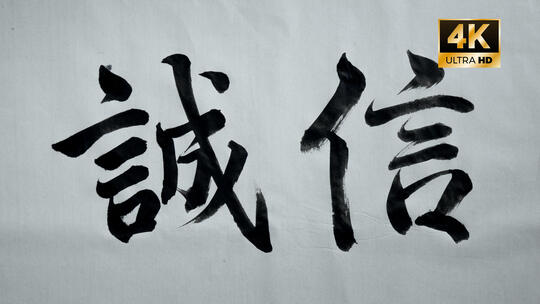 誠信
4K
ULTRA HD